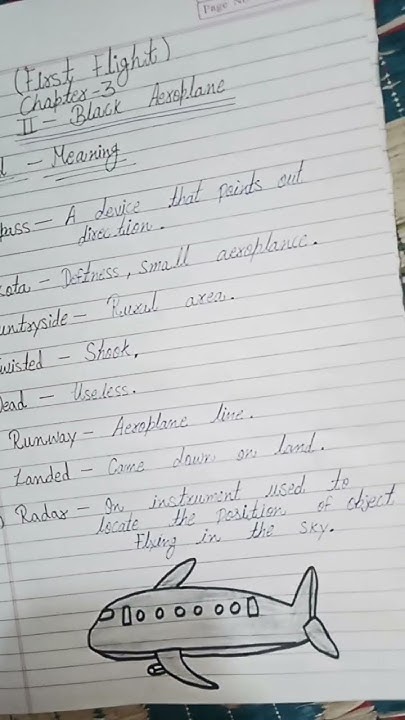 Page No
(First Flight)
Chapter-3
II - Black Aeroplane
- Meaning
pass - A device that points out
direction.
kota - Deftness, small aeroplance.
untryside - Rural area.
wisted - Shook.
Dead - Useless.
Runway - Aeroplane line.
Landed - Came down on land.
Radar - In instrument used to
locate the position of object
flying in the sky.